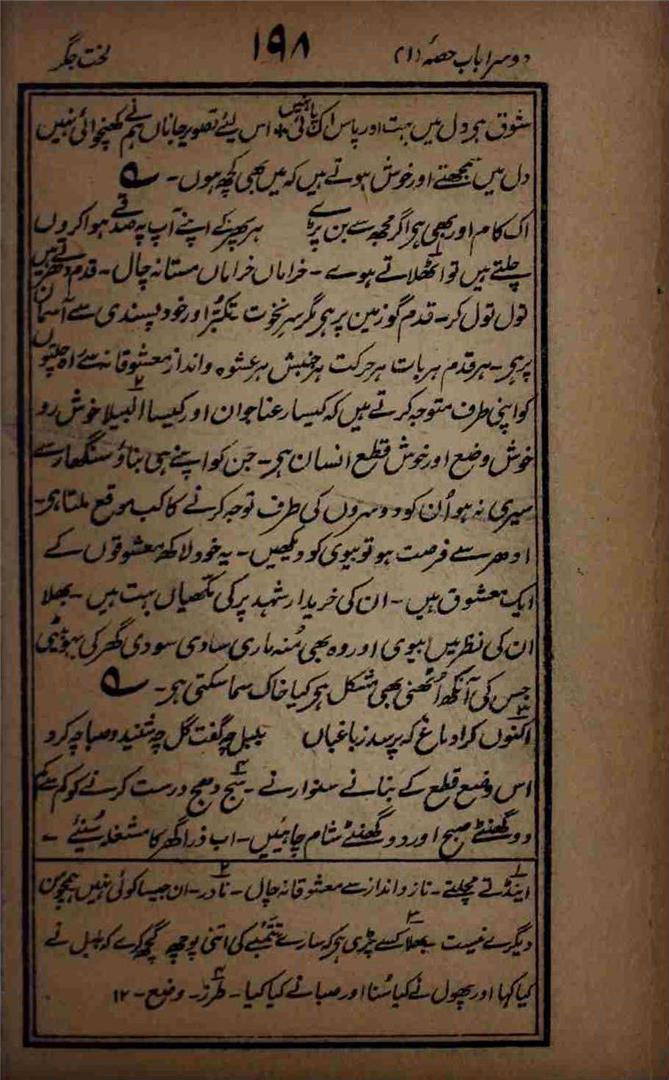 دوسرا باب حصہ (۱) ۱۹۸ لخت جگر
شوق ہی دل میں بہت اور پاس اک پائی نہیں * اس لئے تصویر جاناں ہم نے کھنچوائی نہیں
دل میں سمجھتے اور خوش ہوتے ہیں کہ میں بھی کچھ ہوں۔ ؎
اک کام اور بھی ہی اگر مجھ سے بن پڑے ہر پھر کے اپنے آپ پہ صدقے ہوا کروں
چلتے ہیں تو اٹھلاتے ہوے۔ خراماں خراماں مستانہ چال۔ قدم دھرتے ہیں
تول تول کر۔ قدم گو زمین پر ہی مگر سر نخوت تکبّر اور خود پسندی سے آسمان
پر ہی۔ ہر قدم ہر بات ہر حرکت ہر جنبش ہر عشوہ و انداز معشوقانہ سے راہ چلتوں
کو اپنی طرف متوجہ کرتے ہیں کہ کیسا رعنا جوان اور کیسا البیلا خوش رو
خوش وضع اور خوش قطع انسان ہی۔ جن کو اپنے ہی بناؤ سنگھار سے
سیری نہ ہو اُن کو دوسروں کی طرف توجہ کرنے کا کب موقع ملتا ہی۔
اودھر سے فرصت ہو تو بیوی کو دیکھیں۔ یہ خود لاکھ معشوقوں کے
ایک معشوق ہیں۔ ان کی خریدار شہد پر کی مکھیاں بہت ہیں۔ بھلا
ان کی نظر میں بیوی اور وہ بھی مُنہ ماری سادی سودی گھر کی بہو بیٹی
جس کی آنکھ اُٹھنی بھی مشکل ہی کیا خاک سما سکتی ہی۔ ؎
اکنوں کرا دماغ کہ پرسد ز باغباں بلبل چہ گفت گل چہ شنید و صبا چہ کرد
اس وضع قطع کے بنانے سنوارنے۔ سج دھج درست کرنے کو کم سے کم
دو گھنٹے صبح اور دو گھنٹے شام چاہئیں۔ اب ذرا گھر کا مشغلہ سُنئے۔
۱ اینڈتے مچلتے۔ ناز و انداز سے معشوقانہ چال۔ ۲ نادر۔ ان جیسا کوئی نہیں ہمچو من
دیگرے نیست ۳ بھلا کسے پڑی ہی کہ سارے قصّے کی اتنی پوچھ گچھ کرے کہ بلبل نے
کیا کہا اور پھول نے کیا سُنا اور صبا نے کیا کیا۔ ۴ طرز۔ وضع۔ ۱۲